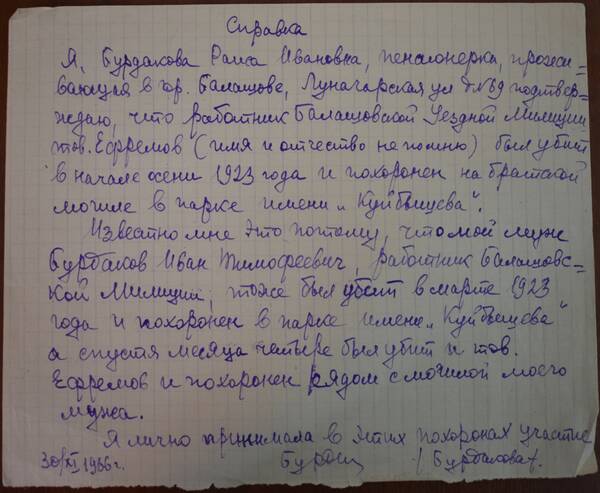 Справка
Я, Бурдакова Раиса Ивановна, пенсионерка, прожи=
вающая в гор. Балашове, Луначарская ул д №89 подтвер=
ждаю, что работник Балашовской Уездной Милиции
тов. Ефремов (имя и отчество не помню) был убит
в начале осени 1923 года и похоронен на братской
могиле в парке имени „Куйбышева".
Известно мне это потому, что мой муж
Бурдаков Иван Тимофеевич, работник Балашовс-
кой Милиции, тоже был убит в марте 1923
года и похоронен в парке имени „Куйбышева"
а спустя месяца четыре был убит и тов.
Ефремов и похоронен рядом с могилой моего
мужа.
Я лично принимала в этих похоронах участие
30/XI 1966 г. /Бурдакова/.